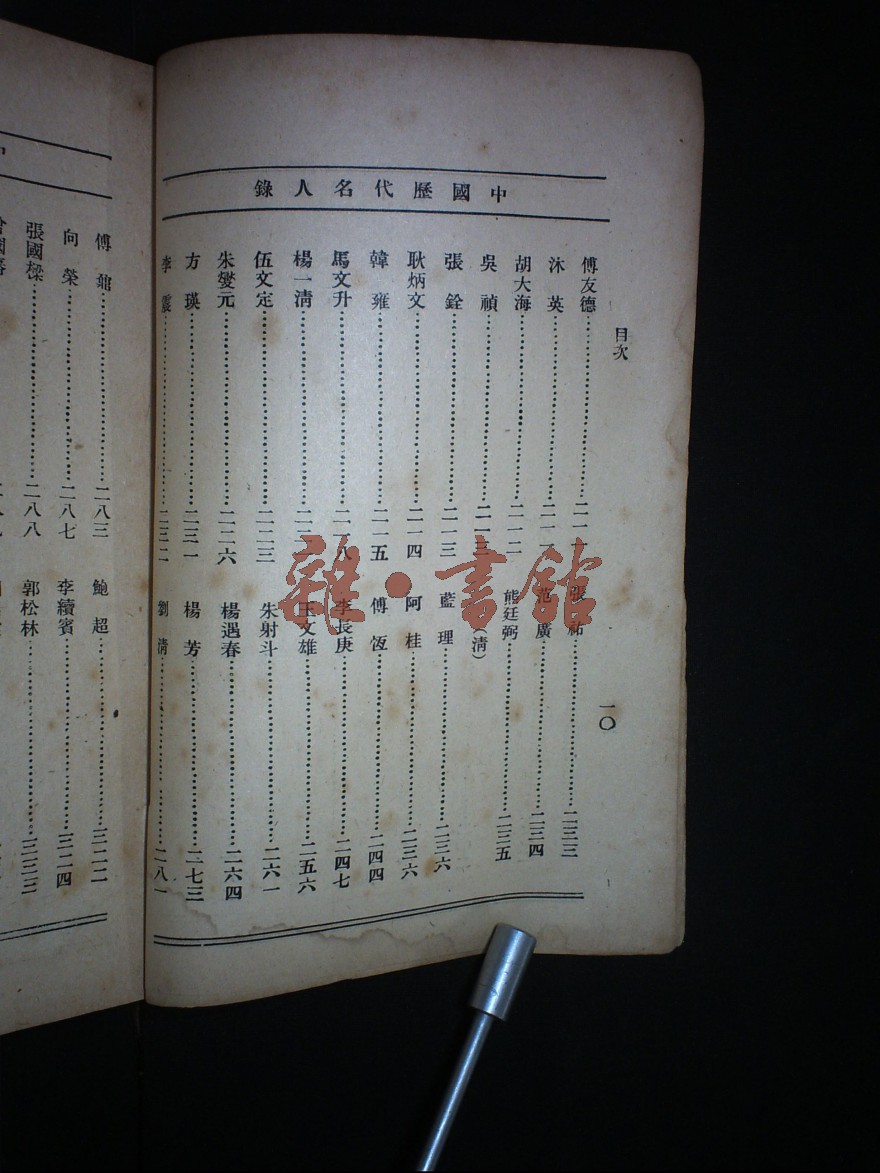 中國歷代名人錄
目次
一〇
傅友德……二一一
沐英……二一一
胡大海……二一二
吳禎……二一三
張銓……二一三
耿炳文……二一四
韓雍……二一五
馬文升……二一八
楊一清
伍文定……二二三
朱燮元……二二六
方瑛……二三一
李震……二三二
張祐……二三三
范廣……二三四
熊廷弼……二三五
(清)
藍理……二三六
阿桂……二三六
傅恆……二四四
李長庚……二四七
王文雄……二五六
朱射斗……二六一
楊遇春……二六四
楊芳……二七三
劉清……二八一
傅鼐……二八三
向榮……二八七
張國樑……二八八
鮑超……三二二
李續賓……三二四
郭松林……三三三
雜·書館